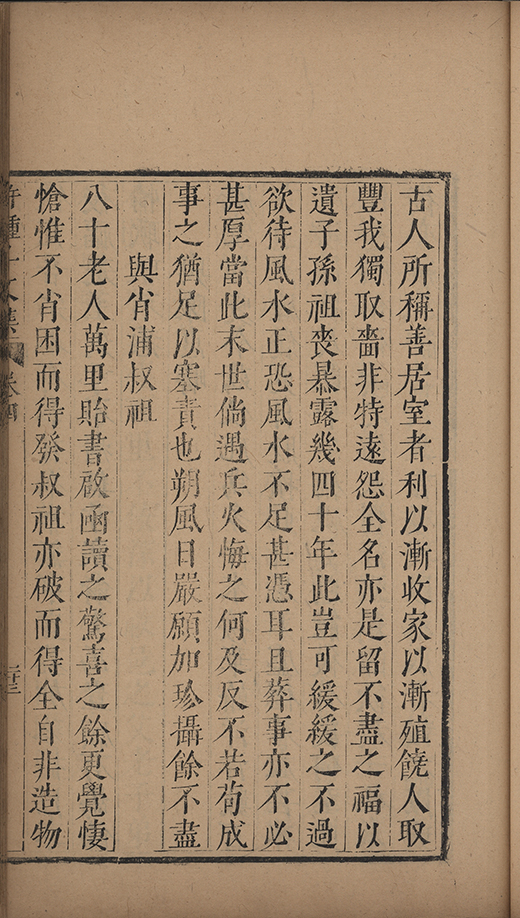 古人所稱善居室者利以漸收家以漸殖饒人取
豐我獨取嗇非特遠怨全名亦是留不盡之福以
遺子孫祖喪暴露幾四十年此豈可緩緩之不過
欲待風水正恐風水不足甚憑耳且葬事亦不必
甚厚當此末世倘遇兵火悔之何及反不若苟成
事之猶足以塞責也朔風日嚴願加珍攝餘不盡
與省浦叔祖
八十老人萬里貽書啟函讀之驚喜之餘更覺悽
愴惟不肖困而得發叔祖亦破而得全自非造物
卷四